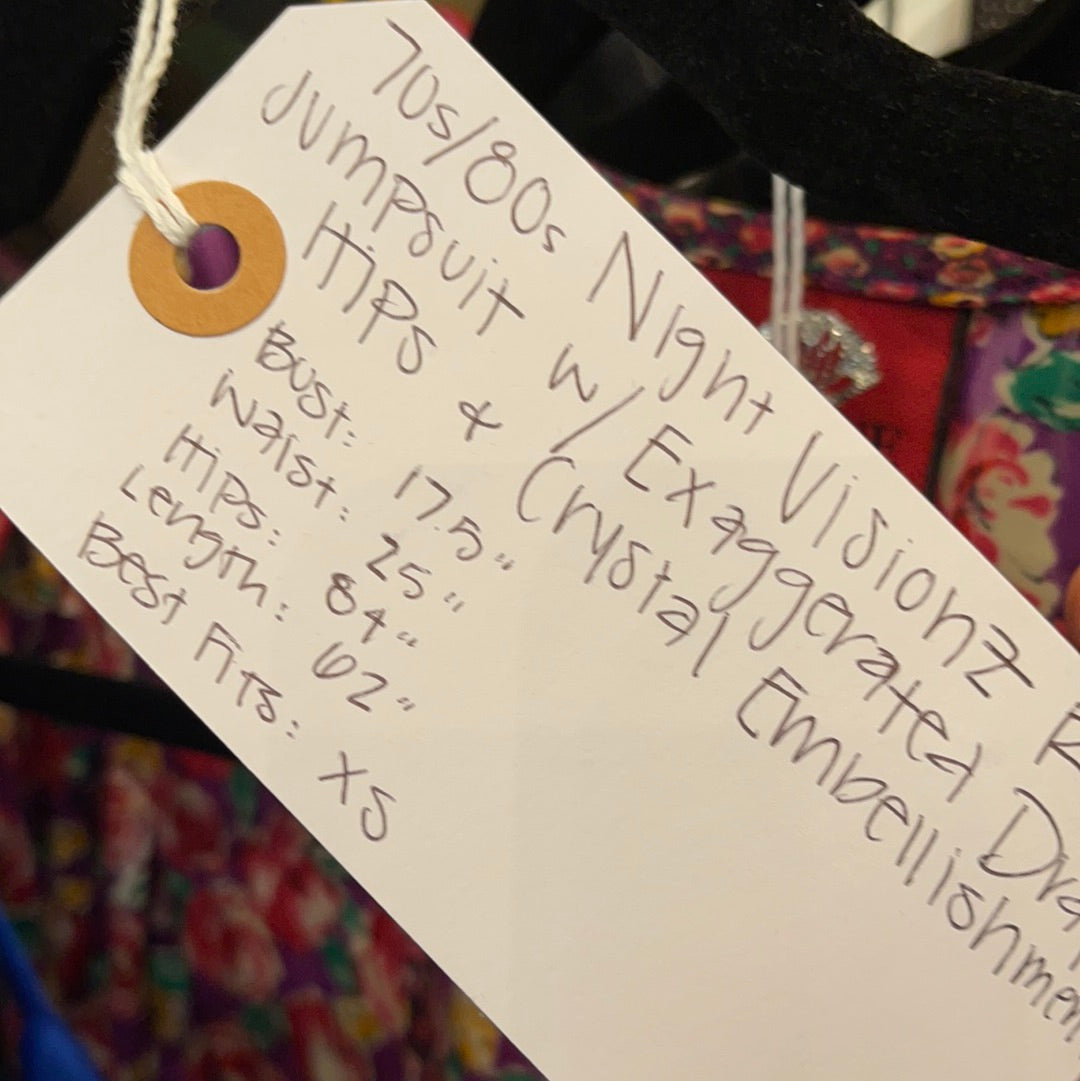 70s/80s Night Visionz
Jumpsuit w/ Exaggerated Dra
Hips & Crystal Embellishmen
Bust: 17.5"
Waist: 25"
Hips: 84"
Length: 62"
Best Fits: XS